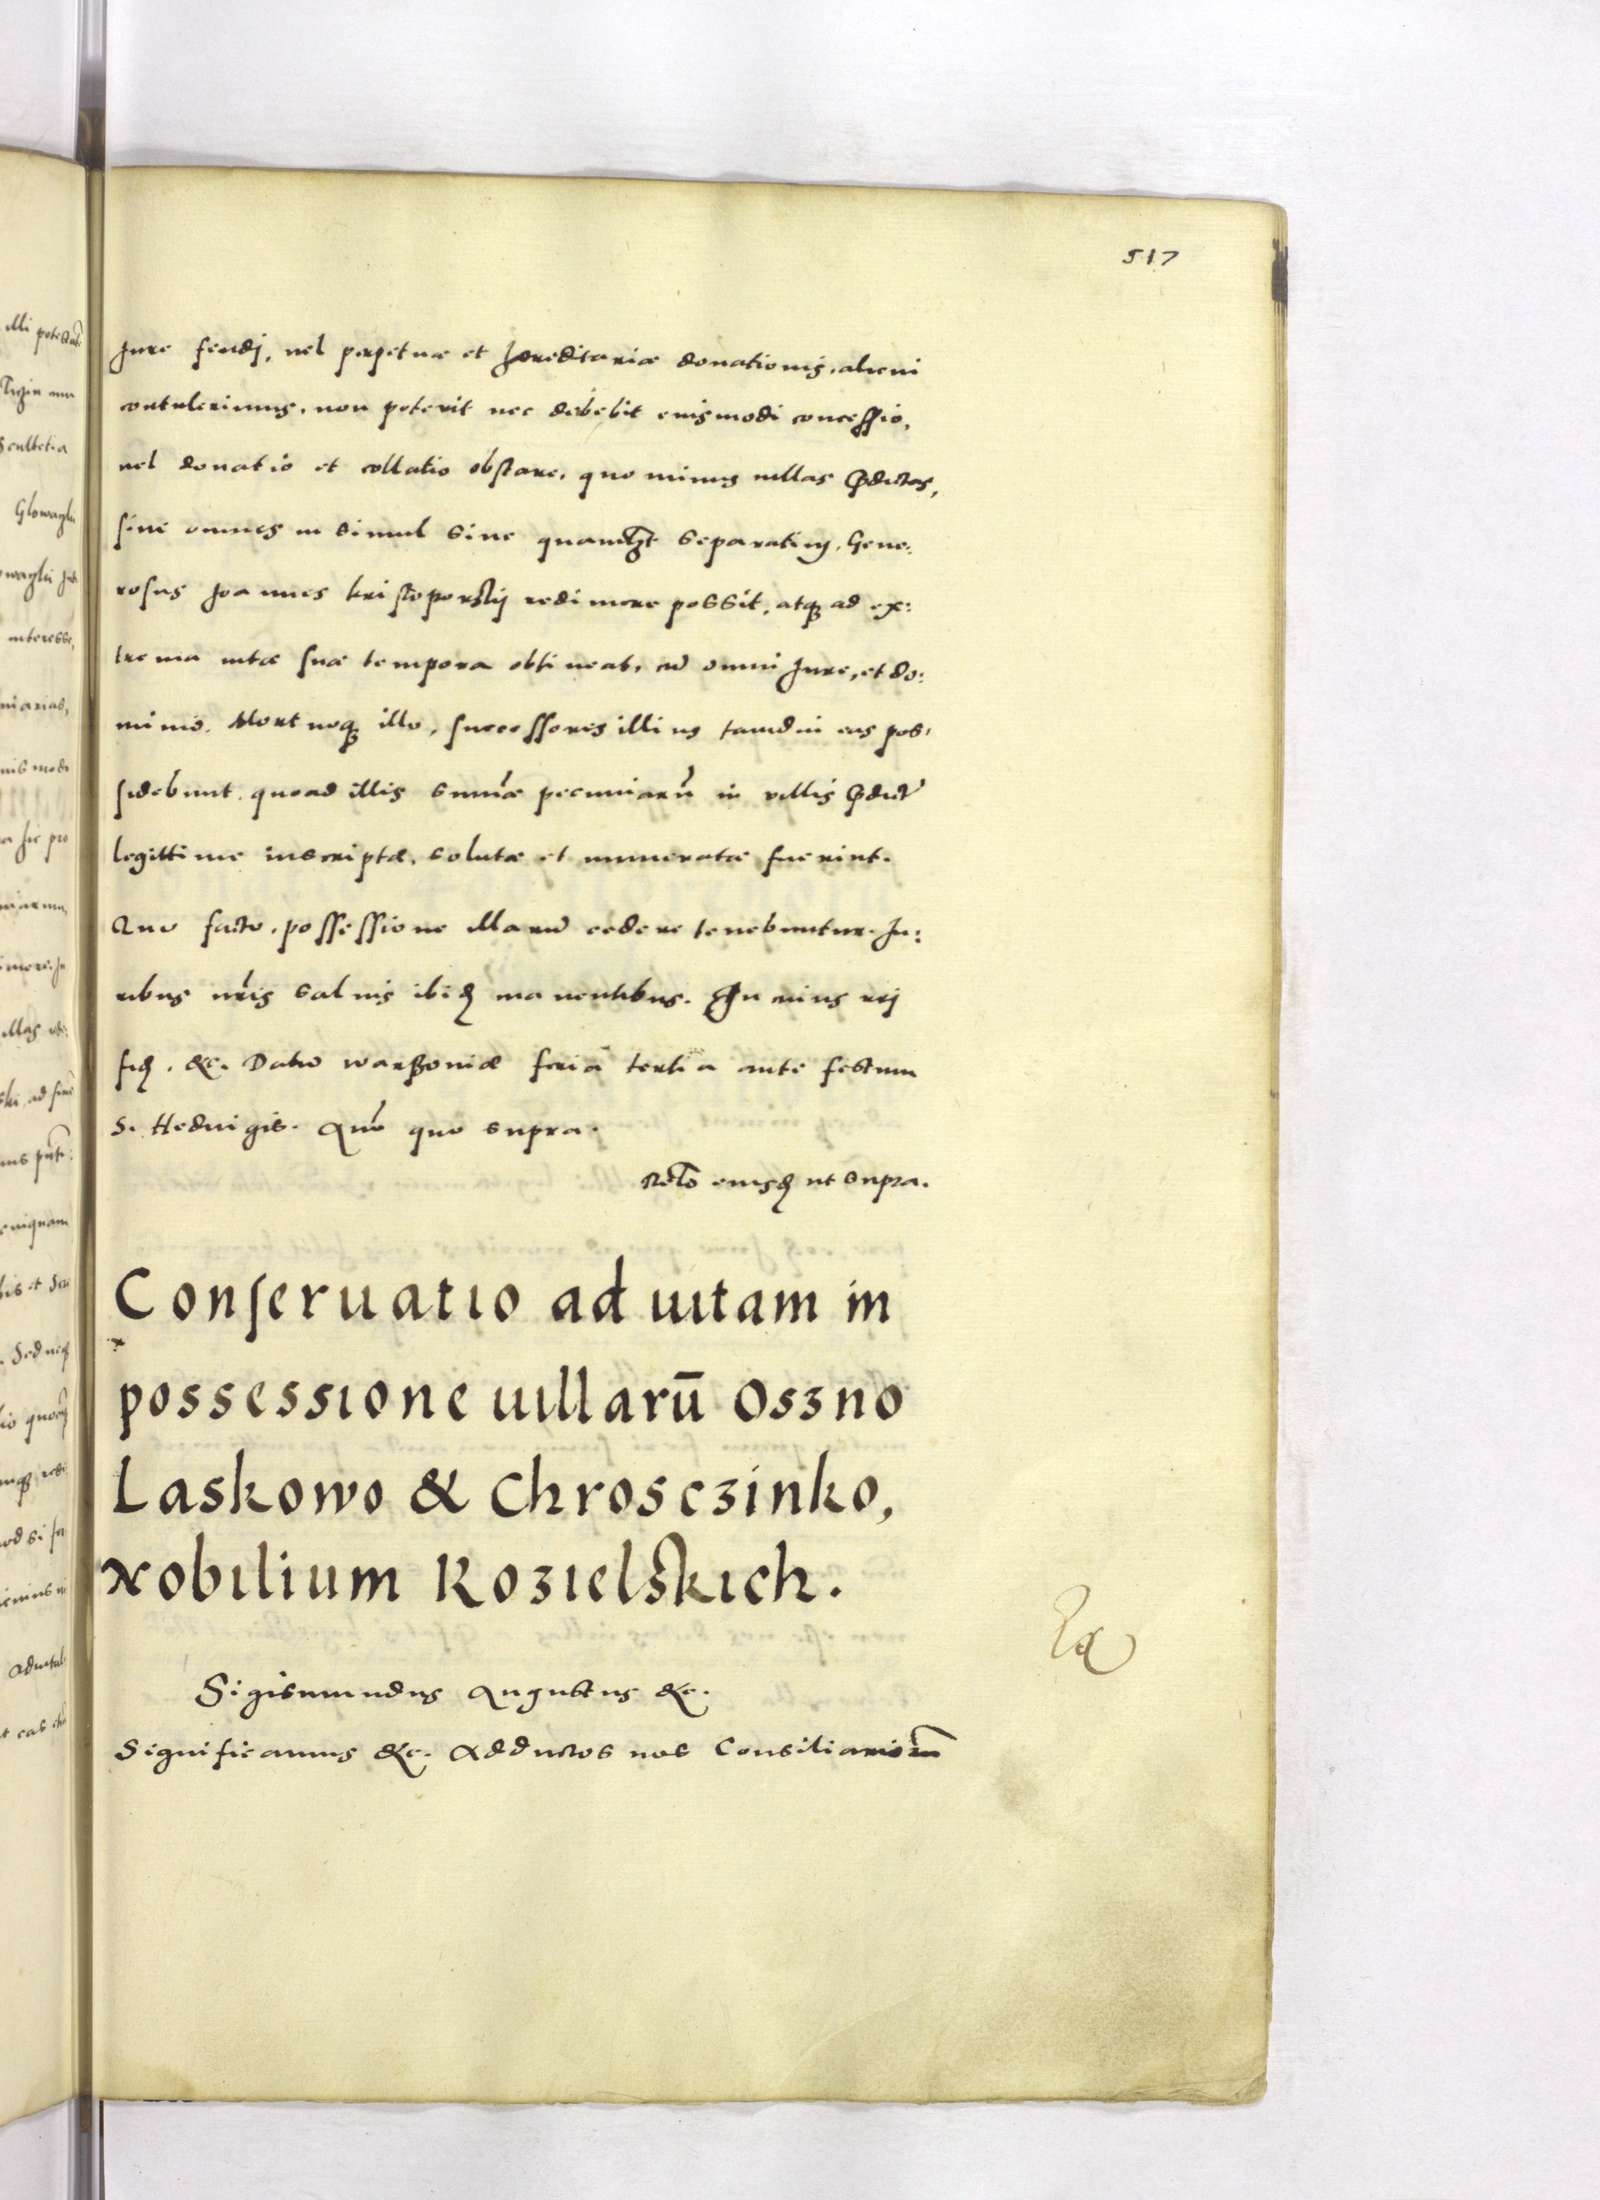 517
Jure feudj, uel perpetuæ et hæreditariæ donationis, alicui
contulerimus, non poterit nec debebit eiusmodi concessio,
uel donatio et collatio obstare, quo minus uillas p̃dictas,
siue omnes in simul siue quamlĩbt separatim, Gene:
rosus Joannes kristoporskij redimere possit, atqꝫ ad ex:
trema uitæ suæ tempora obtineat, cũ omni Jure, et do:
minio. Mortuoqꝫ illo, successores illius tamdiu eas pos:
sidebunt, quoad illis summæ pecuniarũ in villis p̃dict̃
legittime inscriptæ, solutæ et numeratæ fuerint.
Quo facto, possessione illarũ cedere tenebuntur. Ju:
ribus nr̃is saluis ibidẽ manentibus. In cuius rej
fidẽ. &c. Datũ warssouiæ feria tertia ante festum
S. Heduigis. Añõ quo supra.
Relõ eiusdẽ ut supra.
Conseruatio ad uitam in
possessione uillarū Oszno
Laskowo & Chrosczinko,
Nobilium Kozielskich.
Sigismundus Augustus &c.
Significamus &c. Adductos nos Consiliariorũ
illi
Sculteti
interesse,